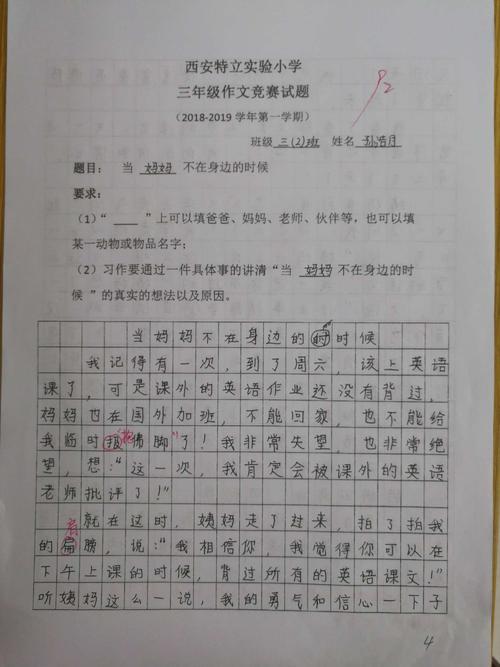 西安特立实验小学
三年级作文竞赛试题
（2018-2019 学年第一学期）
92
班级 三(2)班 姓名 孙浩月
题目： 当 妈妈 不在身边的时候
要求：
（1）“ ____ ”上可以填爸爸、妈妈、老师、伙伴等，也可以填
某一动物或物品名字；
（2）习作要通过一件具体事的讲清“当 妈妈 不在身边的时
候 ”的真实的想法以及原因。
当妈妈不在身边的时时候
我记得有一次，到了周六，该上英语
课了，可是课外的英语作业还没有背过，
妈妈也在国外加班，不能回家，也不能给
我临时报“抱佛脚”了！我非常失望，也非常绝
望，想：“这一次，我肯定会被课外的英语
老师批评了！”
就在过时，姨妈走了过来，拍了拍我
的扁肩膀，说：“我相信你，我觉得你可以在
下午上课的时候，背过所有的英语课文！”
听姨妈这么一说，我的勇气和信心一下子
4